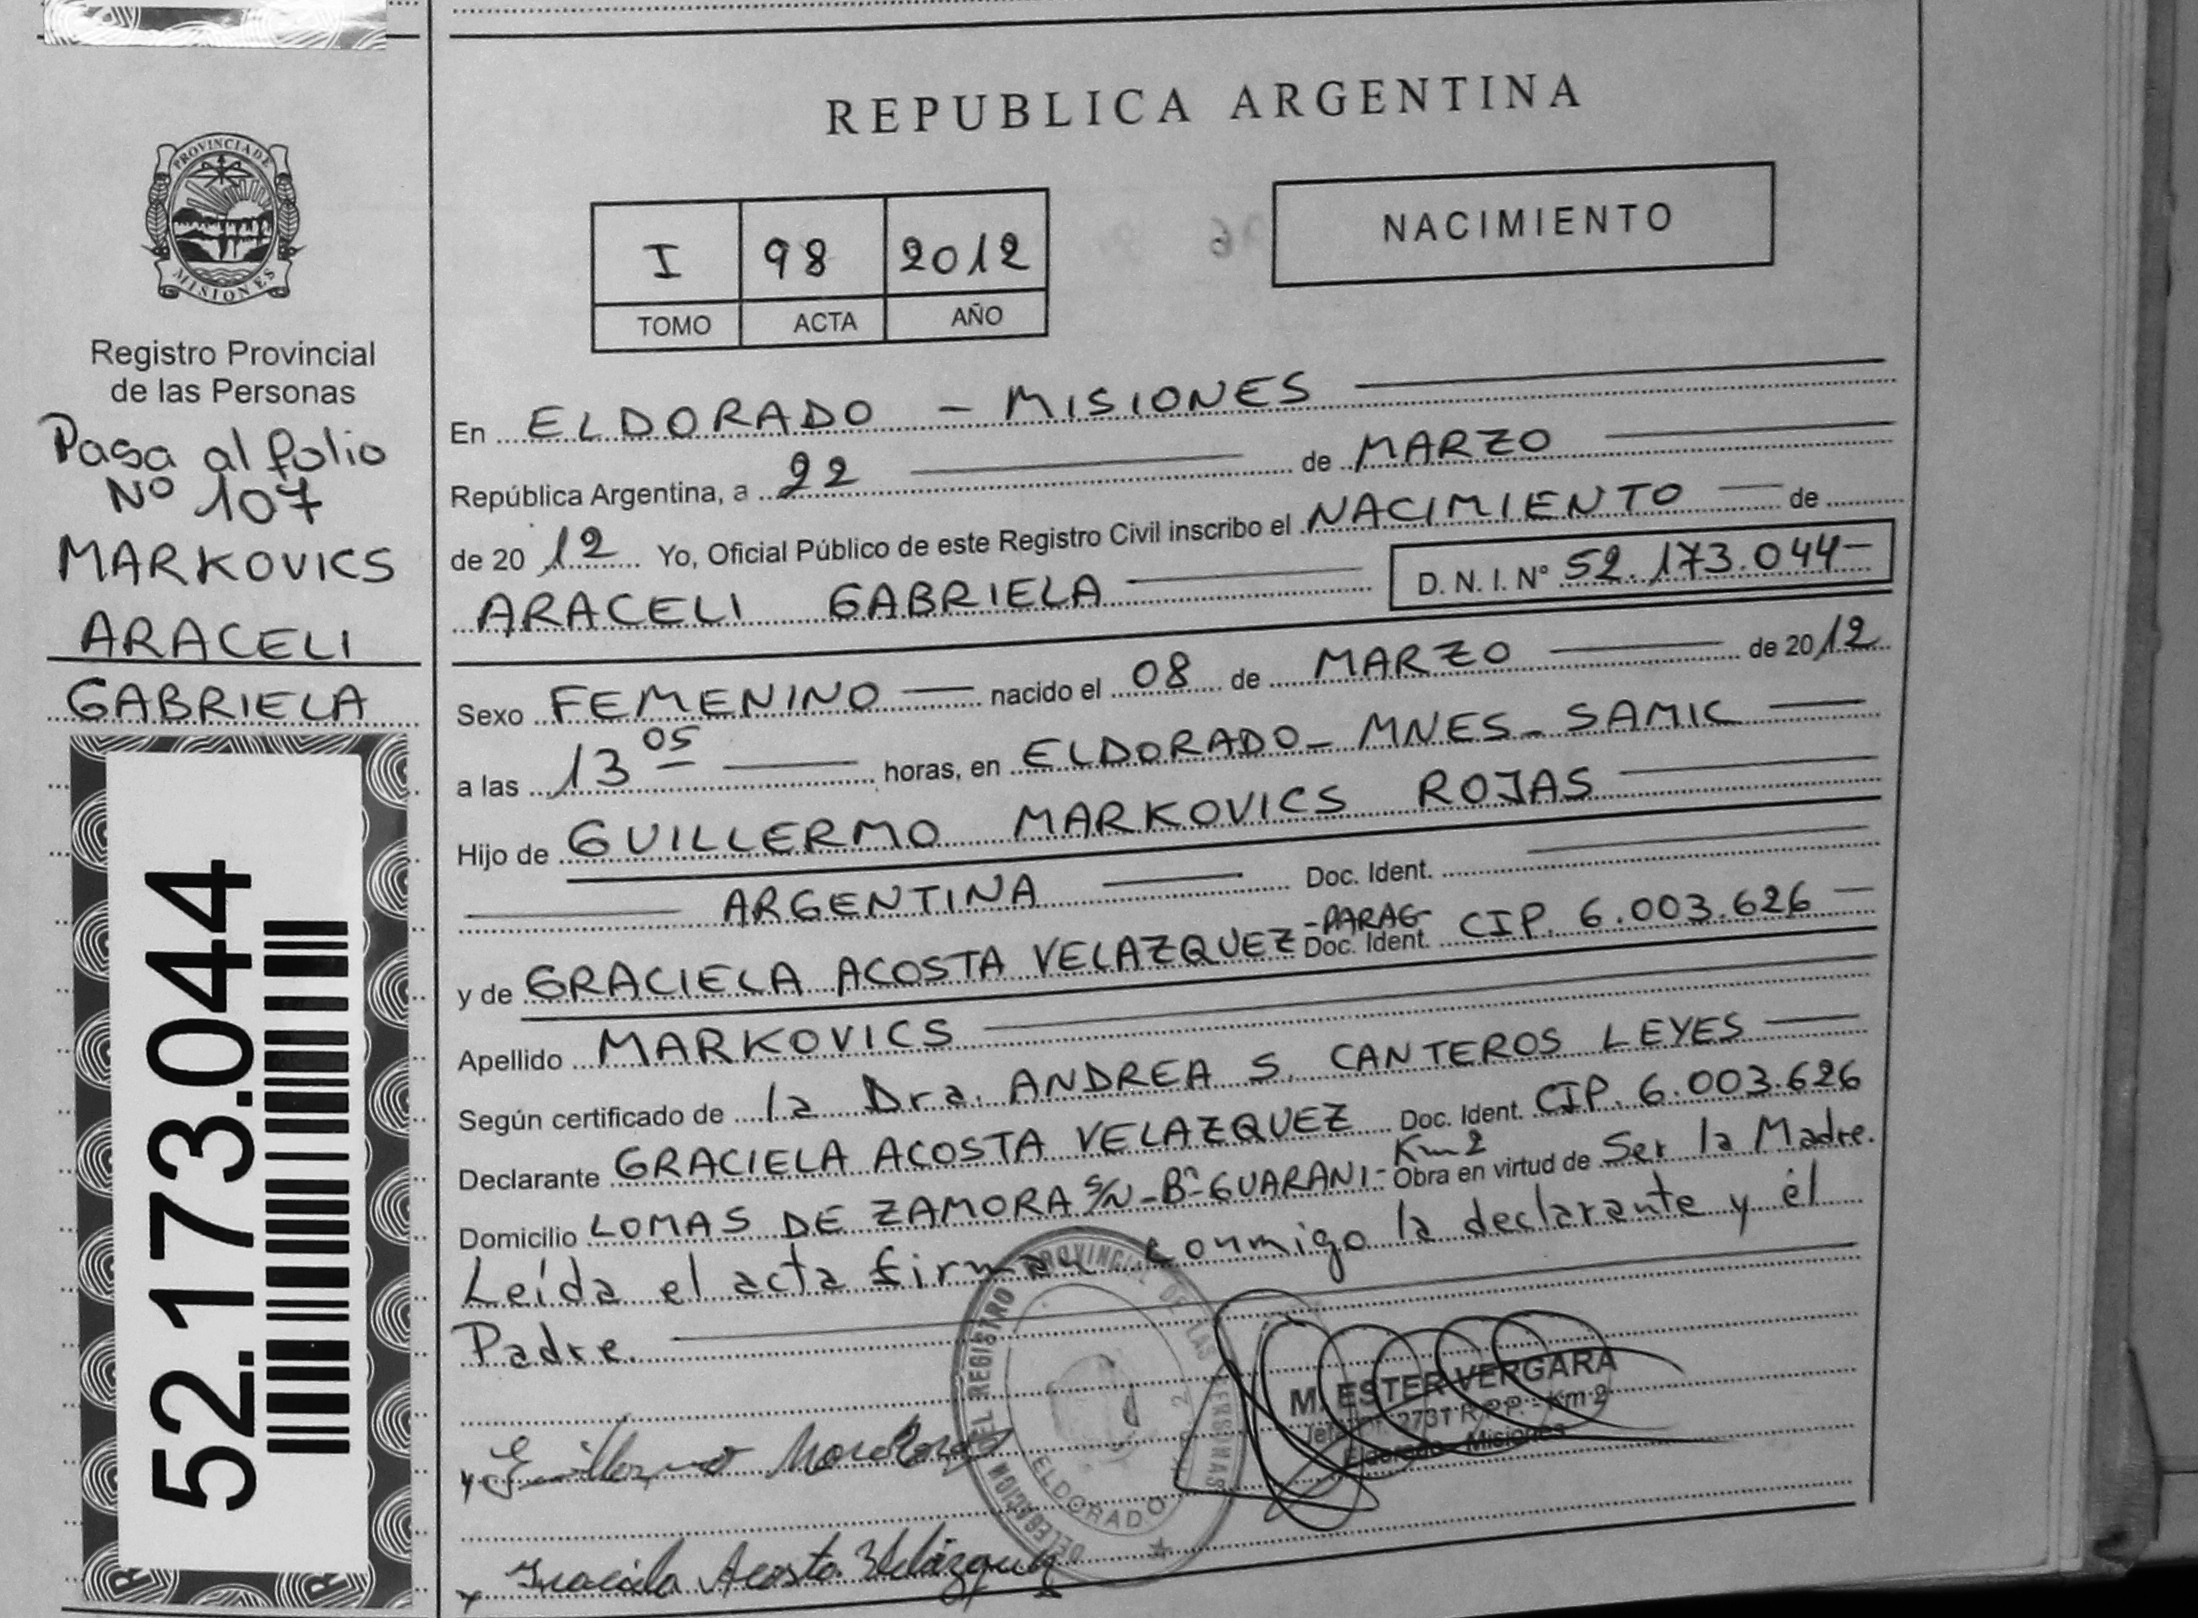 PROVINCIA DE
MISIONES
Registro Provincial
de las Personas
Pasa al folio
Nº 107
MARKOVICS
ARACELI
GABRIELA
52.173.044
REPUBLICA ARGENTINA
I 98 2012
TOMO ACTA AÑO
NACIMIENTO
En ELDORADO - MISIONES
República Argentina, a 22 de MARZO
de 20 12 Yo, Oficial Público de este Registro Civil inscribo el NACIMIENTO de
ARACELI GABRIELA D. N. I. Nº 52.173.044
Sexo FEMENINO nacido el 08 de MARZO de 2012
a las 13 05 horas, en ELDORADO - MNES - SAMIC
Hijo de GUILLERMO MARKOVICS ROJAS
ARGENTINA Doc. Ident.
y de GRACIELA ACOSTA VELAZQUEZ -PARAG- Doc. Ident. CIP. 6.003.626
Apellido MARKOVICS
Según certificado de la Dra. ANDREA S. CANTEROS LEYES
Declarante GRACIELA ACOSTA VELAZQUEZ Doc. Ident. CIP. 6.003.626
Domicilio LOMAS DE ZAMORA S/N - Bº GUARANI - Km 2 Obra en virtud de Ser la Madre.
Leída el acta firman conmigo la declarante y él
Padre.
DELEGACION DEL REGISTRO PROVINCIAL DE LAS PERSONAS
ELDORADO
M. ESTER VERGARA
2731 R.P.P. - Km 2
Eldorado - Misiones
Guillermo
Graciela Acosta Velázquez